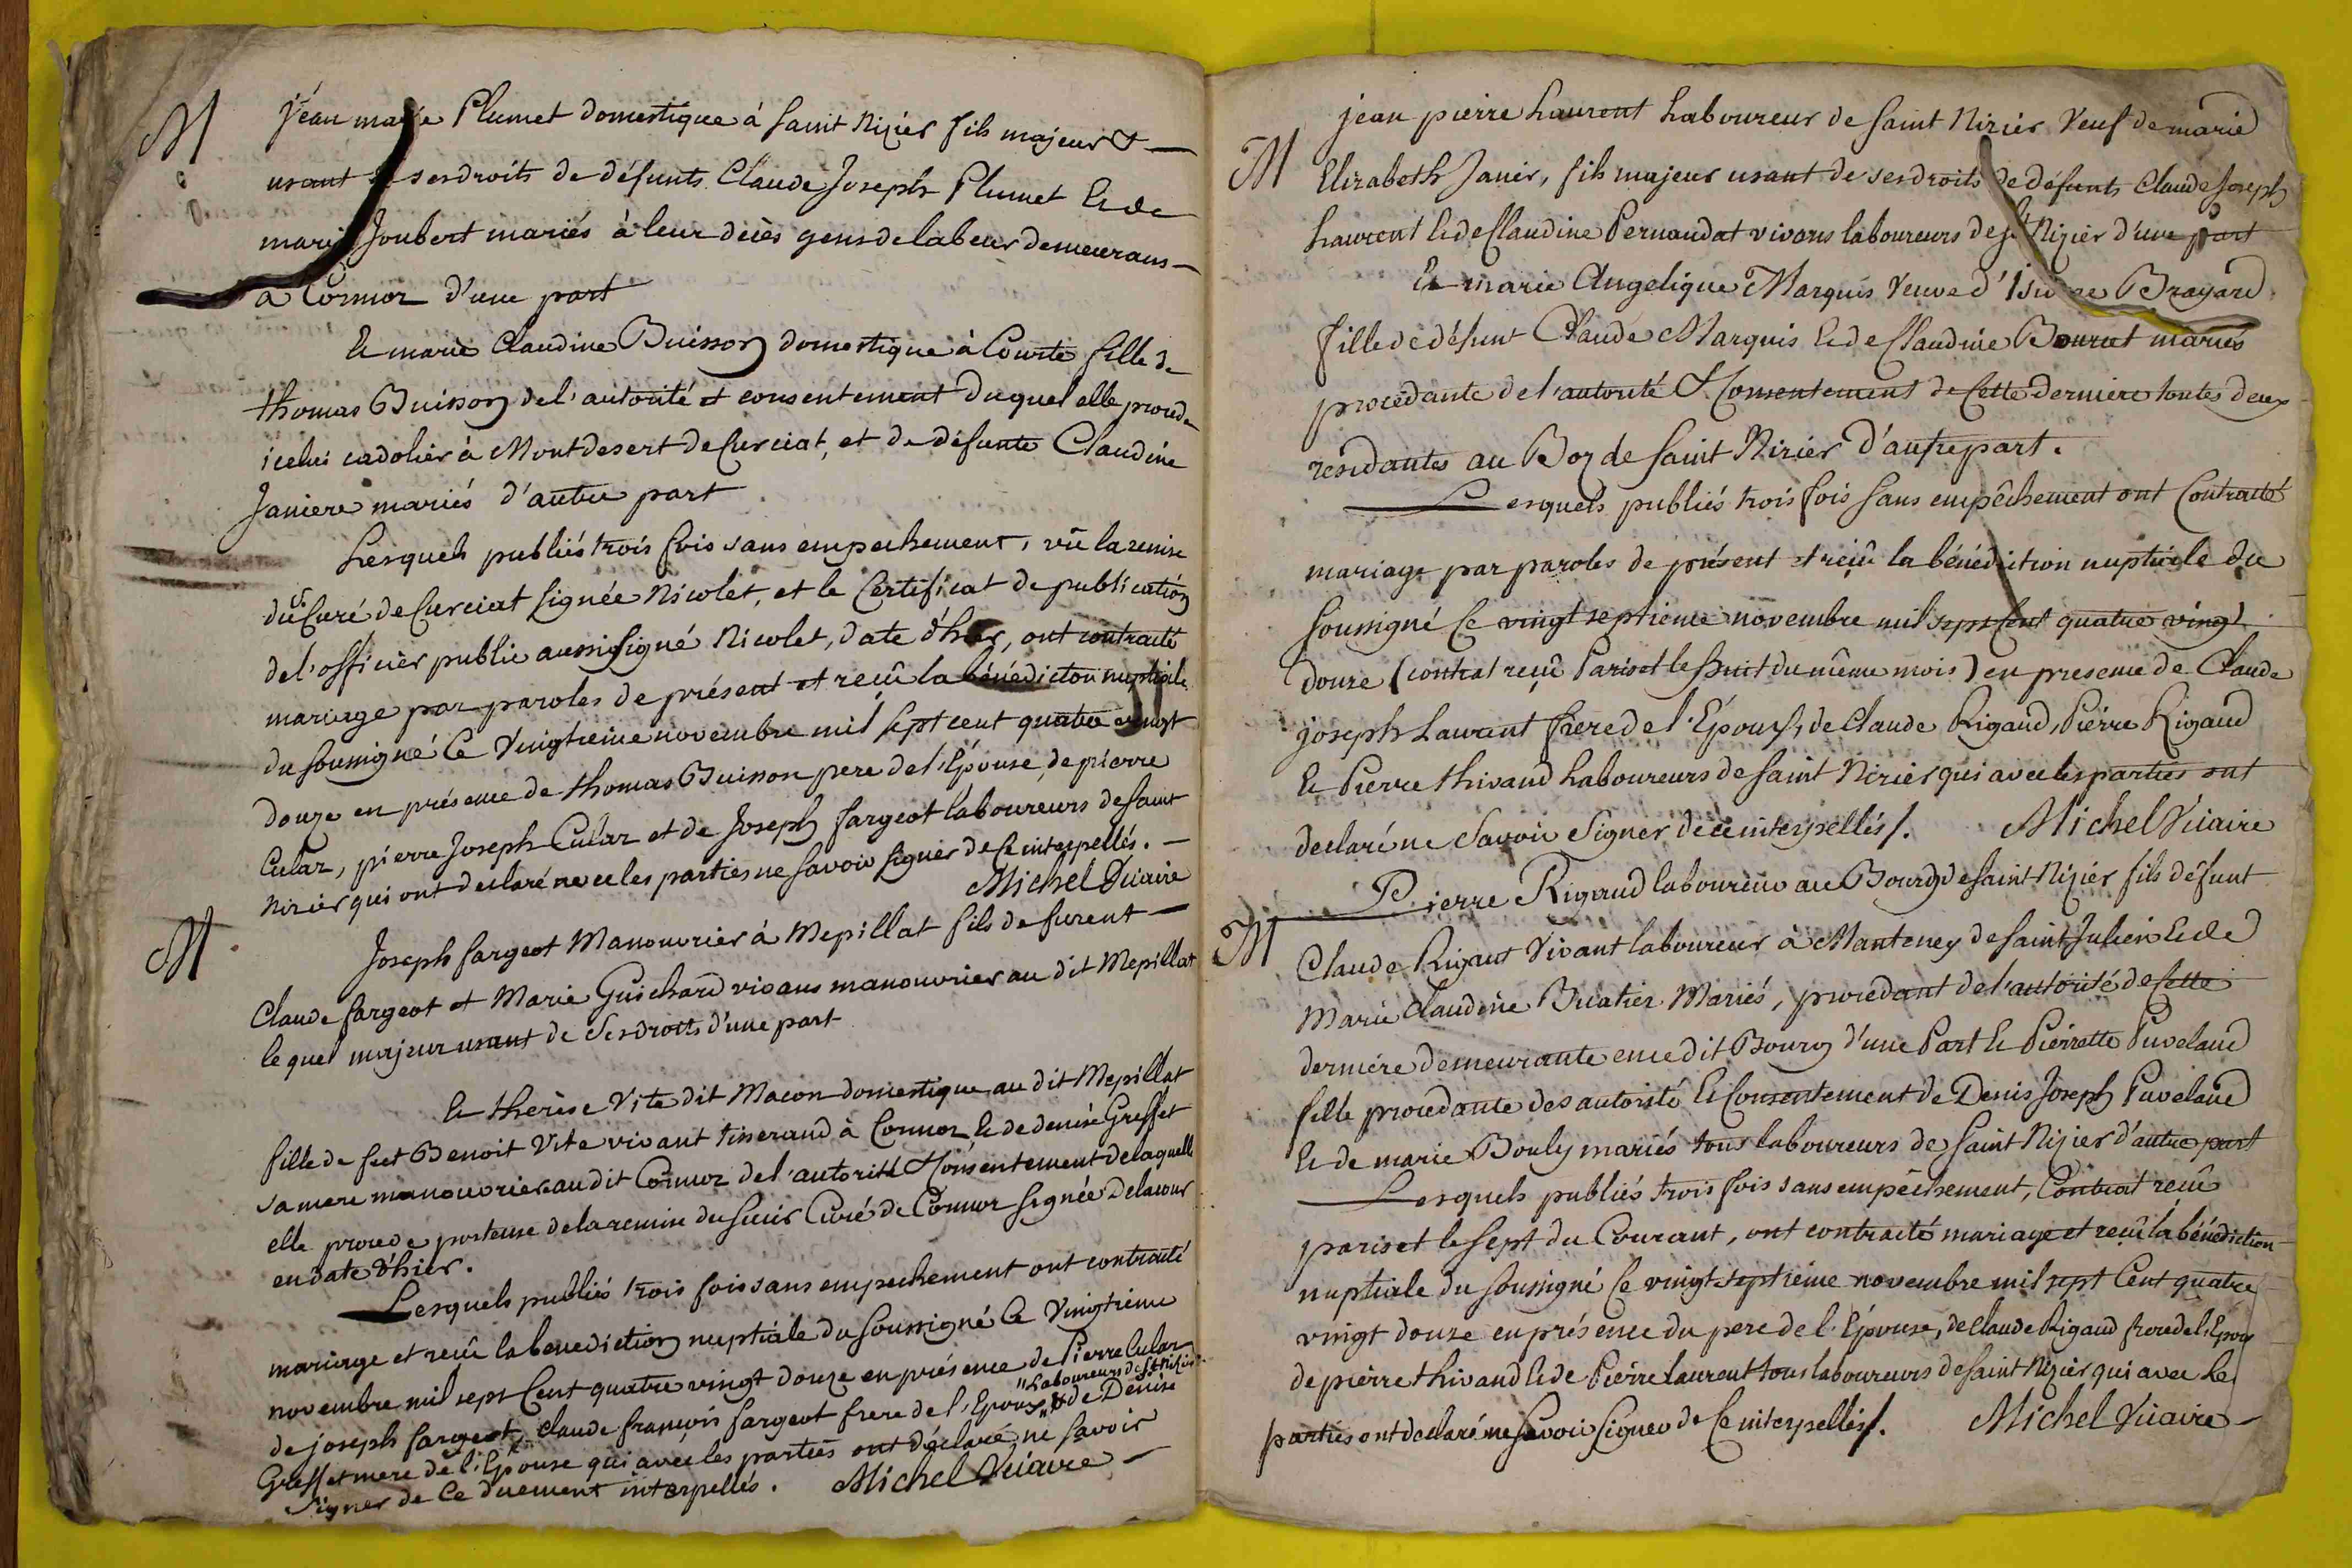 M
jean marie Plumet domestique à Saint Nizier fils majeur &
usant de ses droits de défunts Claude Joseph Plumet & de
marie Joubert mariés à leur décès gens de labeur demeurans
à Cormoz d'une part
& marie Claudine Buisson domestique à Courte fille de
thomas Buisson de l'autorité et consentement duquel elle procede
icelui cadolier à Montdesert de Curciat, et de défunte Claudine
Janiere mariés d'autre part
Lesquels publiés trois fois sans empechement, vû la remise
du Sr Curé de Curciat signée Nicolet, et le Certificat de publication
de l'officier public aussi signé Nicolet, date d'hier, ont contracté
mariage par paroles de présent et reçû la bénédicton nuptiale
du soussigné Ce Vingtieme novembre mil sept cent quatre vingt
douze en présence de thomas Buisson pere de l'Épouse, de pierre
Cular, pierre Joseph Cular et de Joseph fargeot laboureurs de Saint
Nizier qui ont declaré avec les parties ne savoir signer de Ce interpellés.
Michel Vicaire
M
Joseph fargeot Manouvrier à Mepillat fils de furent
Claude fargeot et Marie Guichard vivans manouvrier au dit Mepillat
le quel majeur usant de Ses droits d'une part
& therèse Vite dit Macon domestique au dit Mepillat
fille de feet Benoit Vite vivant tisserand à Cormoz & de denise Greffet
sa mere manouvriere au dit Cormoz de l'autorité & Consentement de laquelle
elle procede porteuse de la remise du Sieur Curé de Cormoz signée Delacour
en date d'hier.
Lesquels publiés trois fois sans empechement ont contracté
mariage et reçû la benediction nuptiale du Soussigné Ce Vingtième
novembre mil sept Cent quatre vingt douze en présence de Pierre Cular
"Laboureurs de St Nizier
de joseph fargeot, Claude françois fargeot frere de l'Epoux," & de Denise
Greffet mere de l'Epouse qui avec les parties ont déclaré ne savoir
Signer de Ce duement interpellés. Michel Vicaire
jean pierre Laurent Laboureur de Saint Nizier Veuf de marie
M
Elizabeth Janier, fils majeur usant de ses droits de défunts Claude Joseph
Laurent & de Claudine Pernaudat vivans laboureurs de St Nizier d'une part
& marie Angelique Marquis Veuve d'Isidore Brayard
fille de défunt Claude Marquis & de Claudine Bouret mariés
procédante de l'autorité & Consentement de Cette derniere toutes deux
residantes au Boz de Saint Nizier d'autre part.
Lesquels publiés trois fois sans empêchement ont Contracté
mariage par paroles de présent et reçû la bénédiction nuptiale du
soussigné Ce vingt septieme novembre mil sept Cent quatre vingt
douze (contrat reçû Pariset le huit du même mois) en presence de Claude
joseph Laurent frere de l'Époux, de Claude Rigaud, Pierre Rigaud
& Pierre thivaud Laboureurs de Saint Nizier qui avec les parties ont
declaré ne Savoir Signer de ce interpellés/. Michel Vicaire
M
Pierre Rigaud laboureur au Bourg de Saint Nizier fils défunt
Claude Rigaut Vivant laboureur à Manteney de Saint Julien & de
Marie Claudine Buatier Mariés, procédant de l'autorité de Cette
derniere demeurante en ce dit Bourg d'une Part & Pierrette Puveland
fille procedante des autorité & Consentement de Denis Joseph Puveland
& de marie Bouly mariés tous laboureurs de Saint Nizier d'autre part
Lesquels publiés trois fois sans empêchement, Contrat reçû
pariset le sept du Courant, ont contracté mariage et reçû la bénédiction
nuptiale du soussigné Ce vingt septieme novembre mil sept Cent quatre
vingt douze en présence du pere de l'Épouse, de Claude Rigaud frere de l'Epoux
de pierre thivaud & de Pierre laurent tous laboureurs de Saint Nizier qui avec les
parties ont declaré ne Savoir Signer de Ce interpellés/. Michel Vicaire